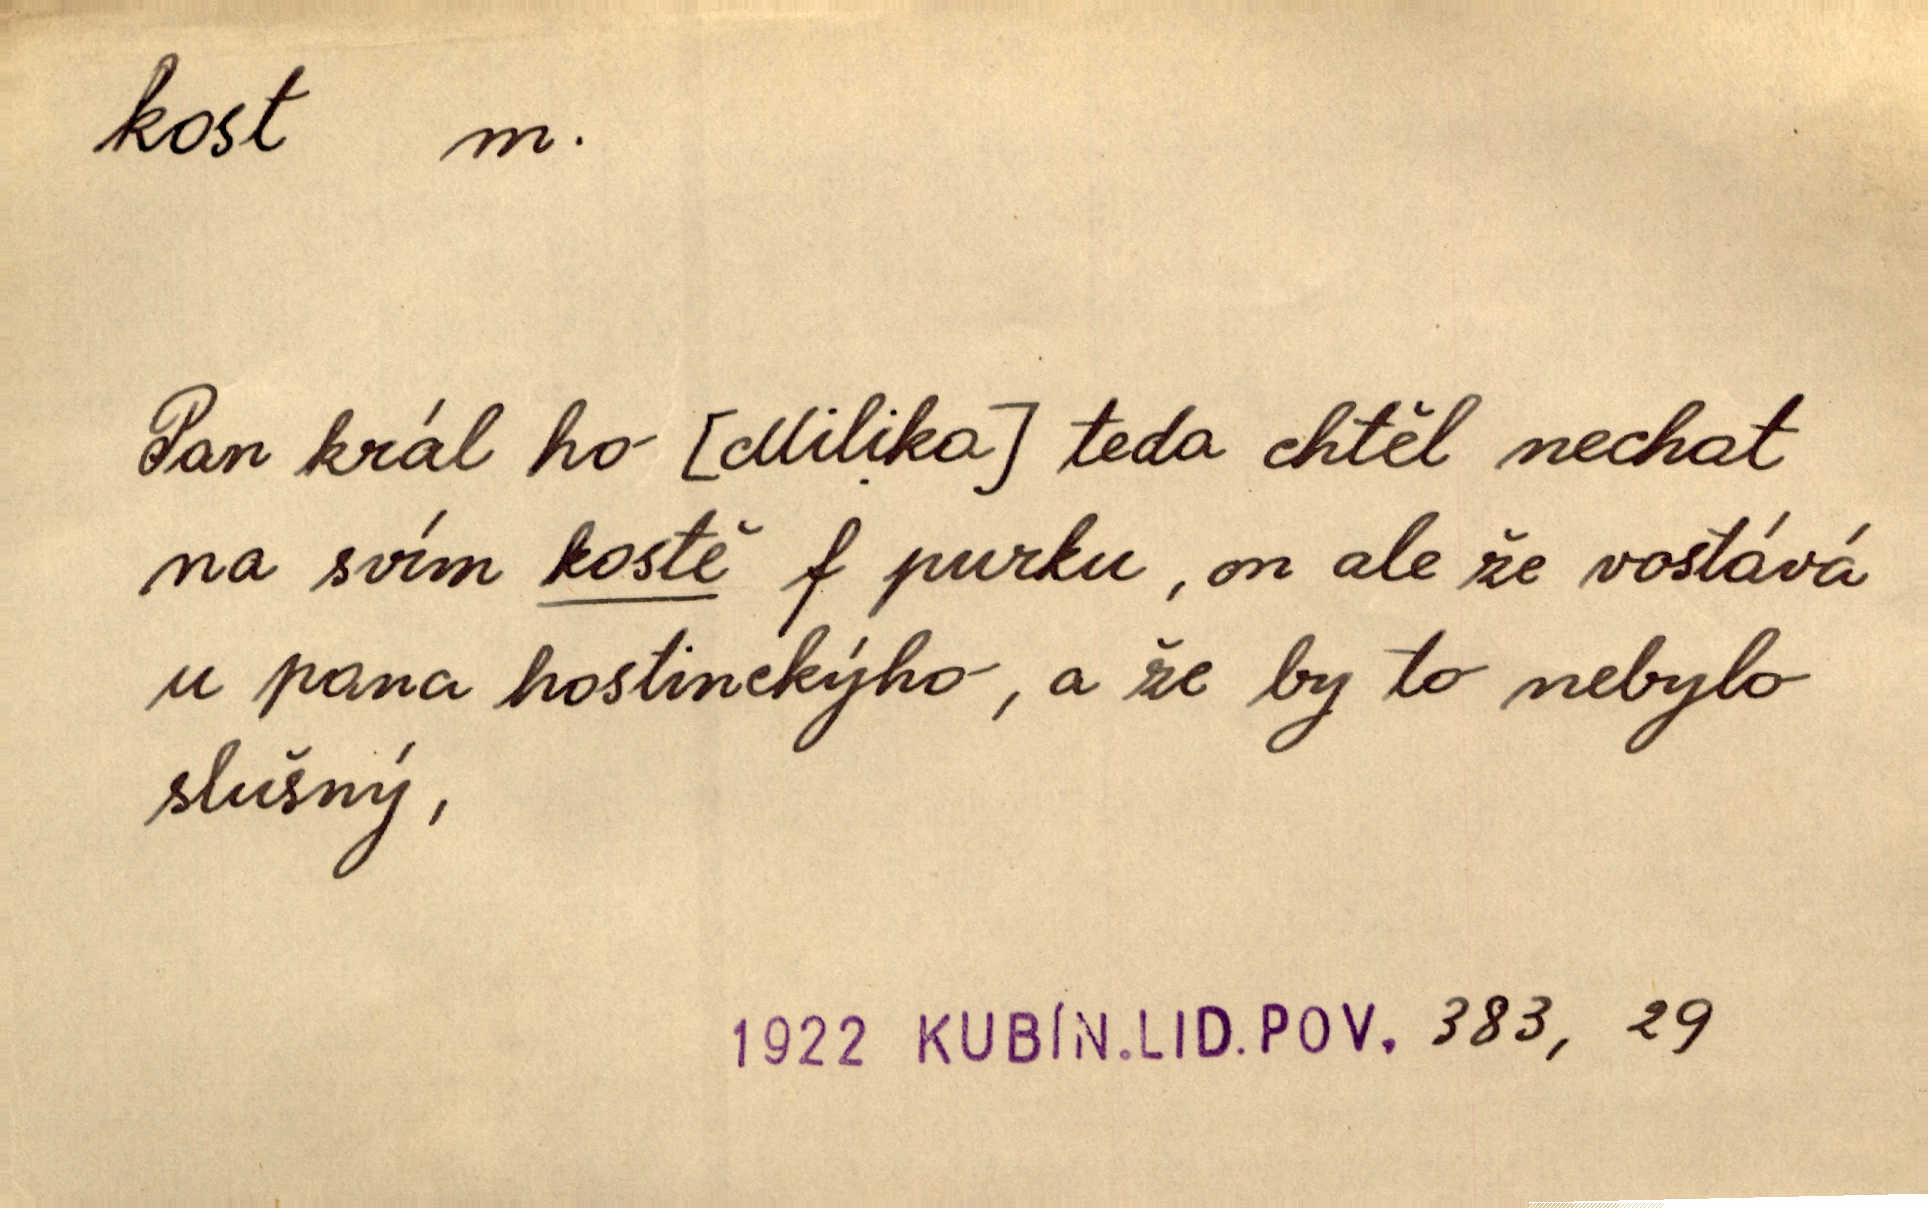 kost m.
Pan král ho [Milika] teda chtěl nechat
na svím kostě f purku, on ale že vostává
u pana hostinckýho, a že by to nebylo
slušný,
1922 KUBÍN.LID.POV. 383, 29